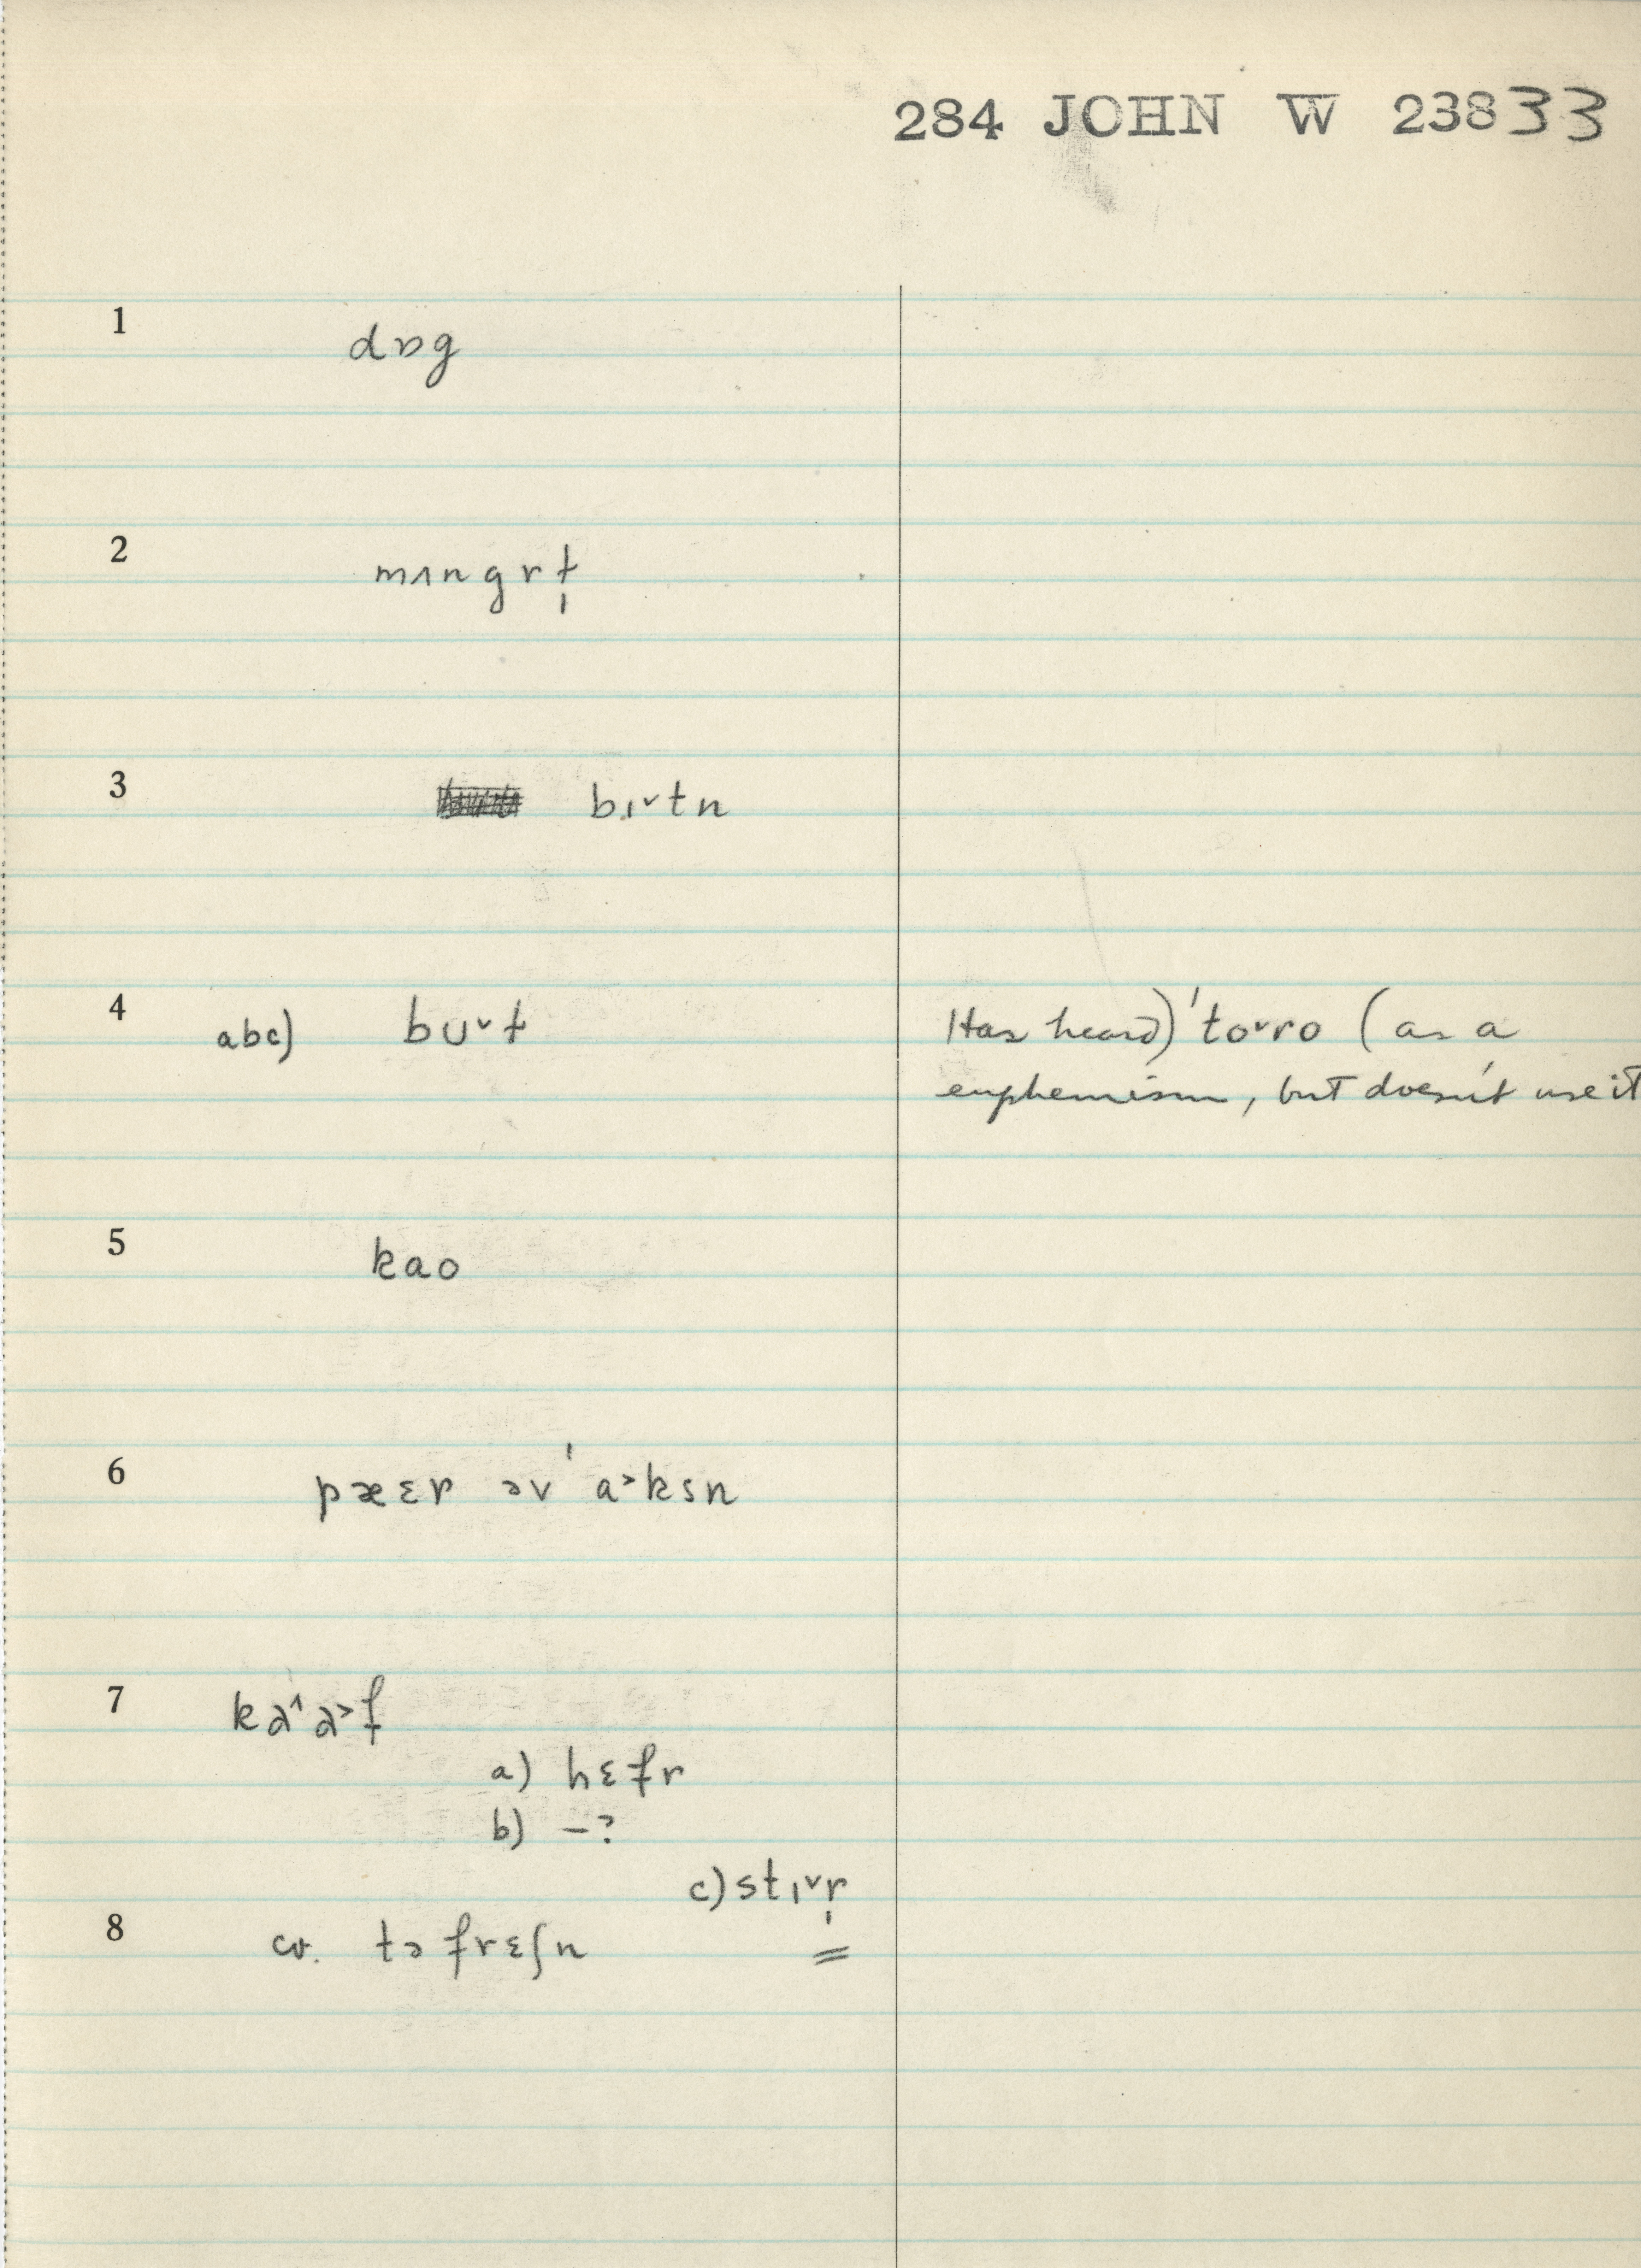 284 JOHN W 23833
1
dɒg
2
mʌngrɫ̩
3
bɪ˅tn
4 abc) bʊ˅ɫ
Has heard) 'to˅ro (as a
euphemism, but doesn't use it
5
kao
6
pæɛr əv 'a˃ksn
7
ka˄a˃f
a) hɛfr
b) –?
c) stɪ˅r̩
8
cv. tə frɛʃn =